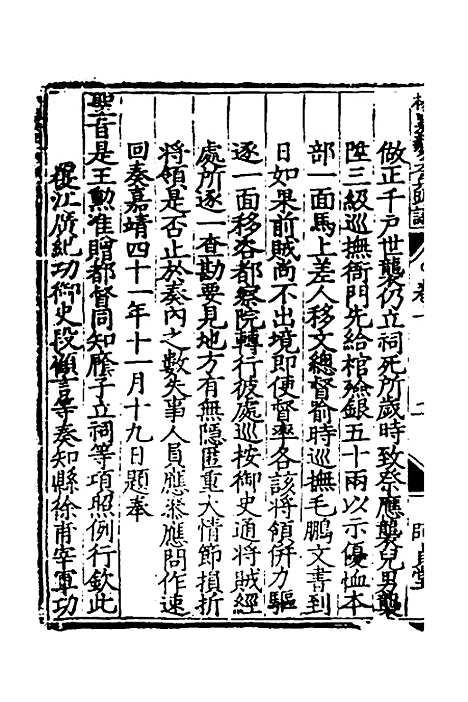 卷一
做正千戶世襲仍立祠死所歲時致祭應襲兒男襲
陞三級巡撫衙門先給棺殮銀五十兩以示優恤本
部一面馬上差人移文總督喻時巡撫毛鵬文書到
日如果前賊尚不出境即便督率各該將領併力驅
逐一面移咨都察院轉行彼處巡按御史通將賊經
處所逐一查勘要見地方有無隱匿重大情節損折
將領是否止於奏內之數失事人員應叅應問作速
回奏嘉靖四十一年十一月十九日題奉
聖旨是王勲准贈都督同知廕子立祠等項照例行欽此
江廣紀功御史段顧言等奏知縣徐甫宰軍功